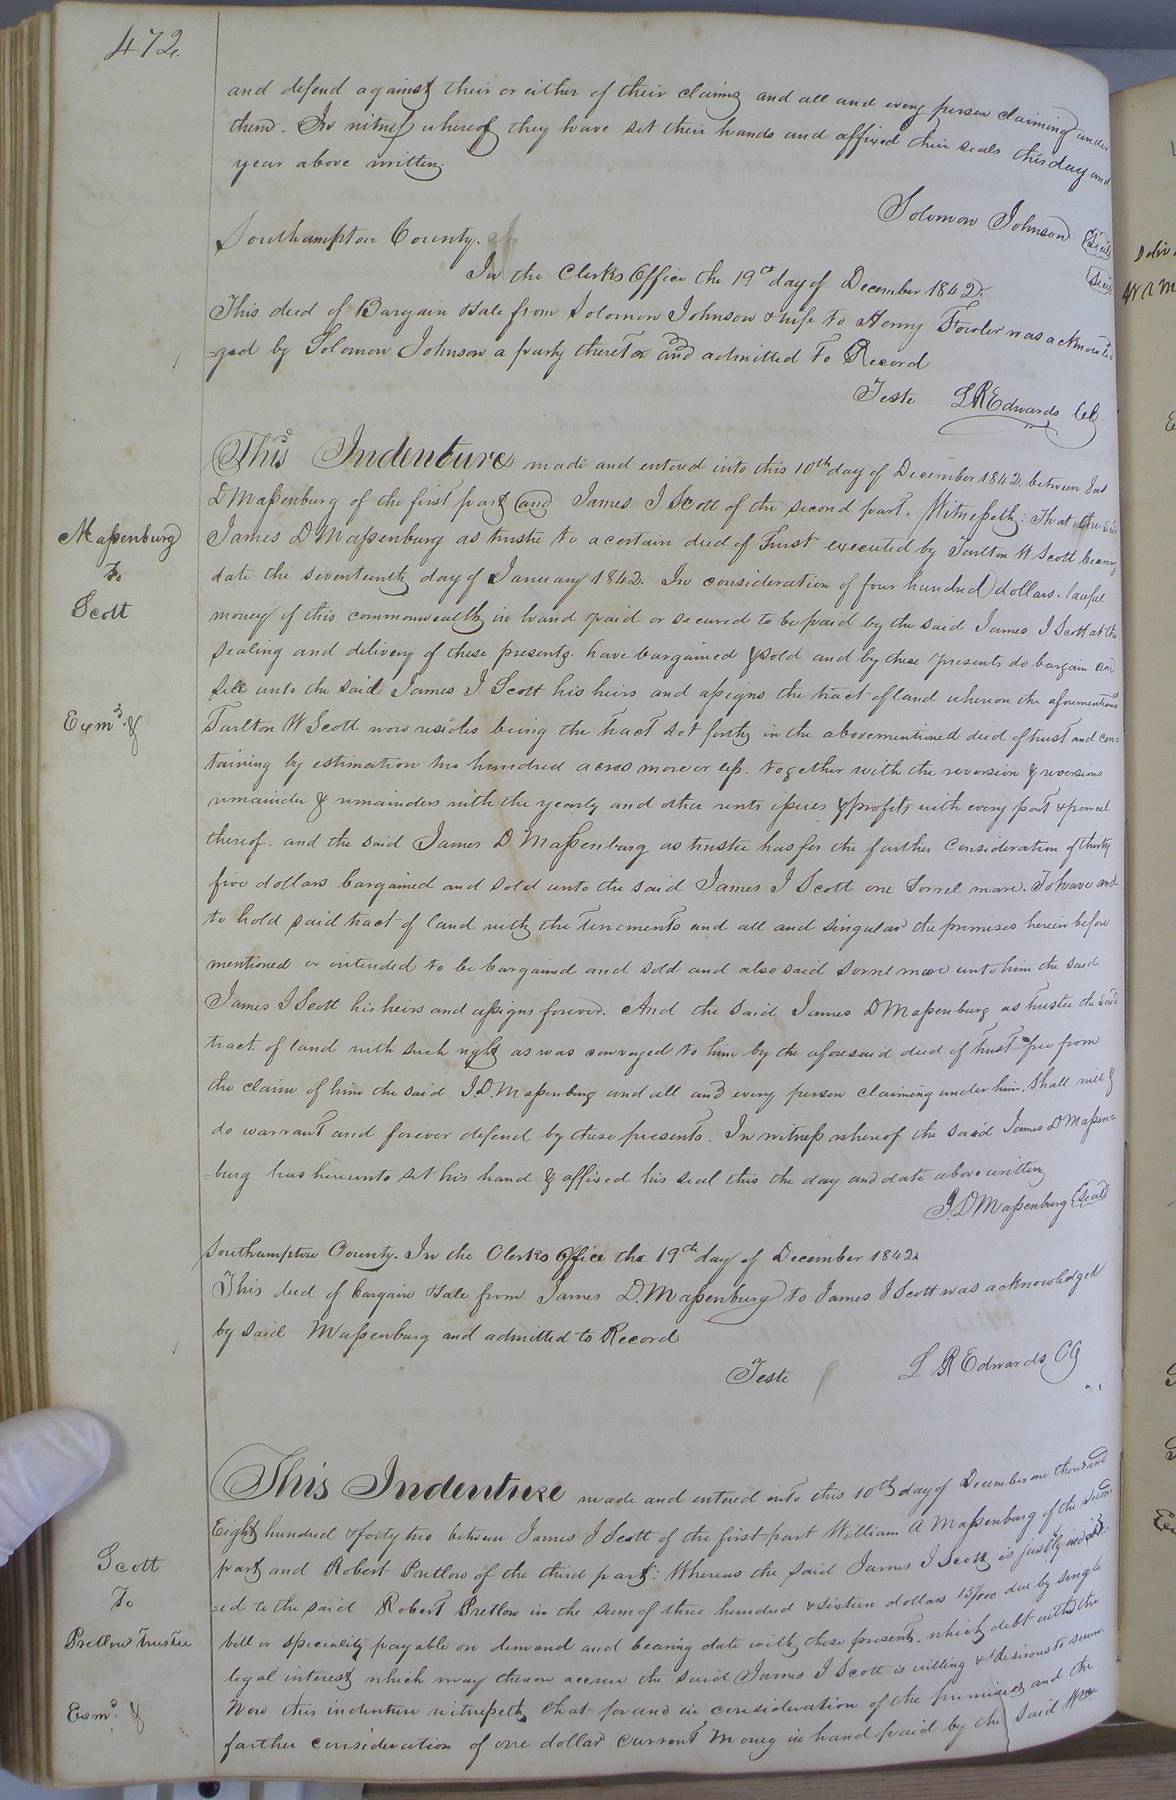 472.
and defend against their or either of their claims and all and every person claiming under
them. In witness whereof they have set their hands and affixed their seals this day and
year above written.
Solomon Johnson (Seal)
(Seal)
Southampton County.
In the Clerks Office the 19th day of December 1842.
This deed of Bargain & Sale from Solomon Johnson & wife to Henry Fowler was acknowled
-ged by Solomon Johnson a party thereto and admitted to Record
Teste L R Edwards CC
This Indenture made and entered into this 10th day of December 1842 between Jas
D Massenburg of the first part and James J Scott of the second part. Witnesseth: That the said
James D Massenburg as trustee to a certain deed of Trust executed by Tarlton W Scott bearing
date the seventeenth day of January 1842. In consideration of four hundred dollars. lawful
money of this commonwealth in hand paid or secured to be paid by the said James J Scott at the
sealing and delivery of these presents. have bargained & sold and by these presents do bargain and
sell unto the said James J Scott his heirs and assigns the tract of land whereon the aforementioned
Tarlton W Scott now resides being the tract set forth in the abovementioned deed of trust and con-
taining by estimation two hundred acres more or less. together with the reversion & reversions
remainder & remainders with the yearly and other rents issues & profits with every part & parcel
thereof. and the said James D Massenburg as trustee has for the further consideration of thirty
five dollars bargained and sold unto the said James J Scott one Sorrel mare. To have and
to hold said tract of land with the tenements and all and singular the premises herein before
mentioned or intended to be bargained and sold and also said sorrel mare unto him the said
James J Scott his heirs and assigns forever. And the said James D Massenburg as trustee the said
tract of land with such right as was conveyed to him by the aforesaid deed of trust free from
the claim of him the said J. D. Massenburg and all and every person claiming under him. Shall will &
do warrant and forever defend by these presents. In witness whereof the said James D Massen-
-burg has hereunto set his hand & affixed his seal this the day and date above written
J. D Massenburg (Seal)
Southampton County. In the Clerks Office the 19th day of December 1842.
This deed of bargain & sale from James D. Massenburg to James J Scott was acknowledged
by said Massenburg and admitted to Record
Teste L R Edwards CC
This Indenture made and entered into this 10th day of December one thousand
Eight hundred & forty two between James J Scott of the first part William A Massenburg of the second
part and Robert Pretlow of the third part: Whereas the said James J Scott is justly indebt-
-ed to the said Robert Pretlow in the sum of three hundred & sixteen dollars 15/100 due by single
bill or speciality payable on demand and bearing date with these presents, which debt with the
legal interest which may thereon accrue the said James J Scott is willing & desirous to secure
Now this indenture witnesseth, that for and in consideration of the premises and the
farther consideration of one dollar current Money in hand paid by the said Wm
Massenburg
To
Scott
Exmd. &
Scott
To
Pretlow Trustee
Exmd. &